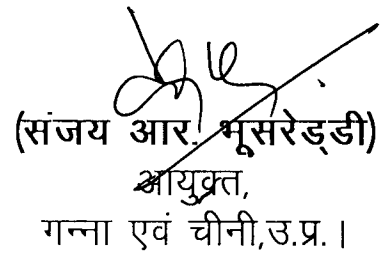 (संजय आर. भूसरेड्डी)
आयुक्त,
गन्ना एवं चीनी,उ.प्र. |